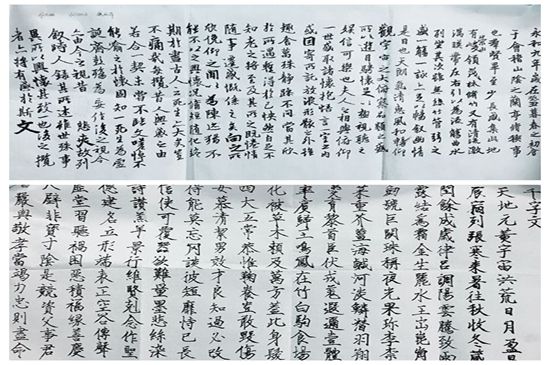 永和九年歲在癸丑暮春之初會
于會稽山陰之蘭亭修稧事
也羣賢畢至少長咸集此地
有崇山峻領茂林脩竹又有清流激
湍暎帶左右引以為流觴曲水
列坐其次雖無絲竹管弦之
盛一觴一詠亦足以暢敘幽情
是日也天朗氣清惠風和暢仰
觀宇宙之大俯察品類之盛
所以遊目騁懷足以極視聽之
娛信可樂也夫人之相與俯仰
一世或取諸懷抱悟言一室之內
或因寄所託放浪形骸之外雖
趣舍萬殊靜躁不同當其欣
於所遇暫得於己快然自足不
知老之將至及其所之既惓情
隨事遷感慨係之矣向之所
欣俛仰之間以為陳迹猶不
能不以之興懷況脩短隨化終
期於盡古人云死生亦大矣豈
不痛哉每攬昔人興感之由
若合一契未嘗不臨文嗟悼不
能喻之於懷固知一死生為虛
誕齊彭殤為妄作後之視今
亦由今之視昔 悲夫故列
敘時人錄其所述雖世殊事
異所以興懷其致一也後之攬
者亦將有感於斯文
千字文
天地元黃宇宙洪荒日月盈昃
辰宿列張寒來暑往秋收冬藏
閏餘成歲律呂調陽雲騰致雨
露結為霜金生麗水玉出崑崗
劍號巨闕珠稱夜光果珍李柰
菜重芥薑海鹹河淡鱗潛羽翔
愛育黎首臣伏戎羌遐邇壹體
率賓歸王鳴鳳在竹白駒食場
化被草木賴及萬方蓋此身髮
四大五常恭惟鞠養豈敢毀傷
女慕清潔男效才良知過必改
得能莫忘罔談彼短靡恃己長
信使可覆器欲難量墨悲絲染
詩讚羔羊景行維賢剋念作聖
德建名立形端表正空谷傳聲
虛堂習聽禍因惡積福緣善慶
尺璧非寶寸陰是競資父事君
曰嚴與敬孝當竭力忠則盡命